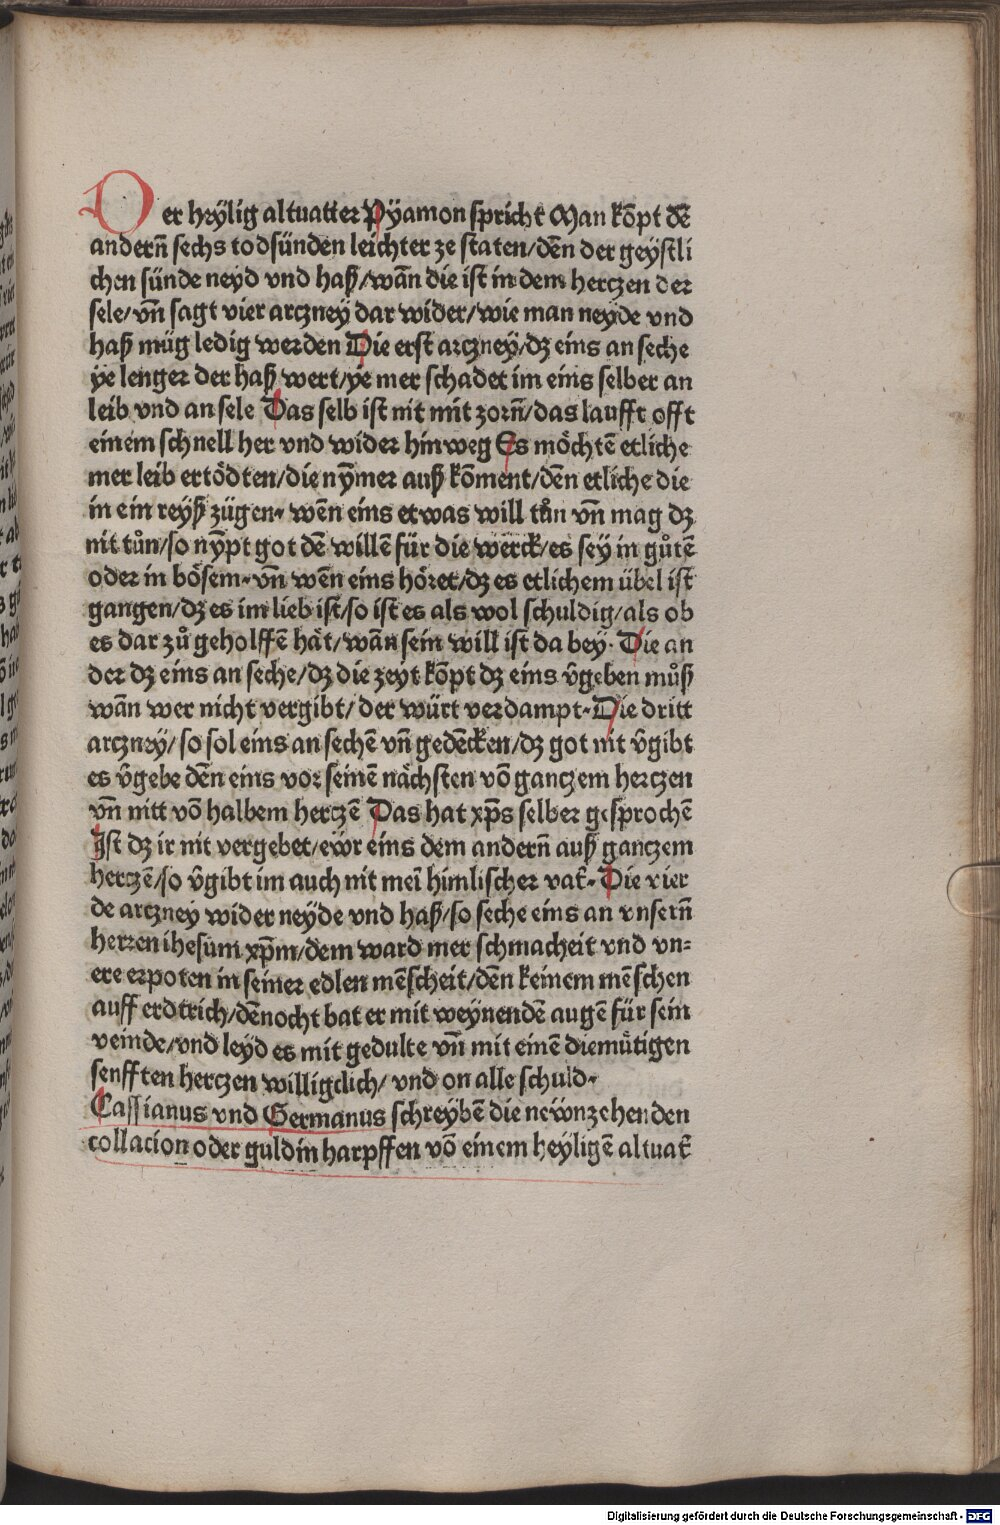 Der heÿlig altuatter Pÿamon spricht Man kōpt dē
andern̄ sechs todsünden leichter ze staten/dēn der geÿstli
chen sünde neyd vnd haß/wān die ist in dem hertzen der
sele/vn̄ sagt vier arczneÿ dar wider/wie man neyde vnd
haß müg ledig werden Die erst arczneÿ/dz eins an seche
ÿe lenger der haß wert/ÿe mer schadet im eins selber an
leib vnd an sele Das selb ist nit mit zorn̄/das laufft offt
einem schnell her vnd wider hinweg Es möchtē etliche
mer leib ertödten/die nȳmer auß kōment/dēn etliche die
in ein reÿß zügen. wēn eins etwas will tůn vn̄ mag dz
nit tůn/so nȳpt got dē willē für die werck/es seÿ in gůtē
oder in bösem. vn̄ wēn eins höret/dz es etlichem übel ist
gangen/dz es im lieb ist/so ist es als wol schuldig/als ob
es dar zů geholffē hät/wān sein will ist da bey. Die an
der dz eins an seche/dz die zeyt kōpt dz eins v̄geben můß
wān wer nicht vergibt/der würt verdampt. Die dritt
arczneÿ/so sol eins an sechē vn̄ gedēcken/dz got nit v̄gibt
es v̄gebe dēn eins vor seinē nächsten vō ganczem herczen
vn̄ nitt vō halbem herczē Das hat xp̄s selber gesprochē
Ist dz ir nit vergebet/ewr eins dem andern̄ auß ganczem
herczē/so v̄gibt im auch nit mei himlischer vat̄. Die vier
de arczney wider neÿde vnd haß/so seche eins an vnsern̄
herren ihesum xp̄m/dem ward mer schmacheit vnd vn=
ere erpoten in seiner edlen mēscheit/dēn keinem mēschen
auff erdtrich/dēnocht bat er mit weÿnendē augē für sein
veinde/vnd leyd es mit gedulte vn̄ mit einē diemůtigen
senfften herczen willigclich/vnd on alle schuld.
Cassianus vnd Germanus schreÿbē die newnzehenden
collacion oder guldin harpffen vō einem heÿligē altuat̄
Digitalisierung gefördert durch die Deutsche Forschungsgemeinschaft - DFG